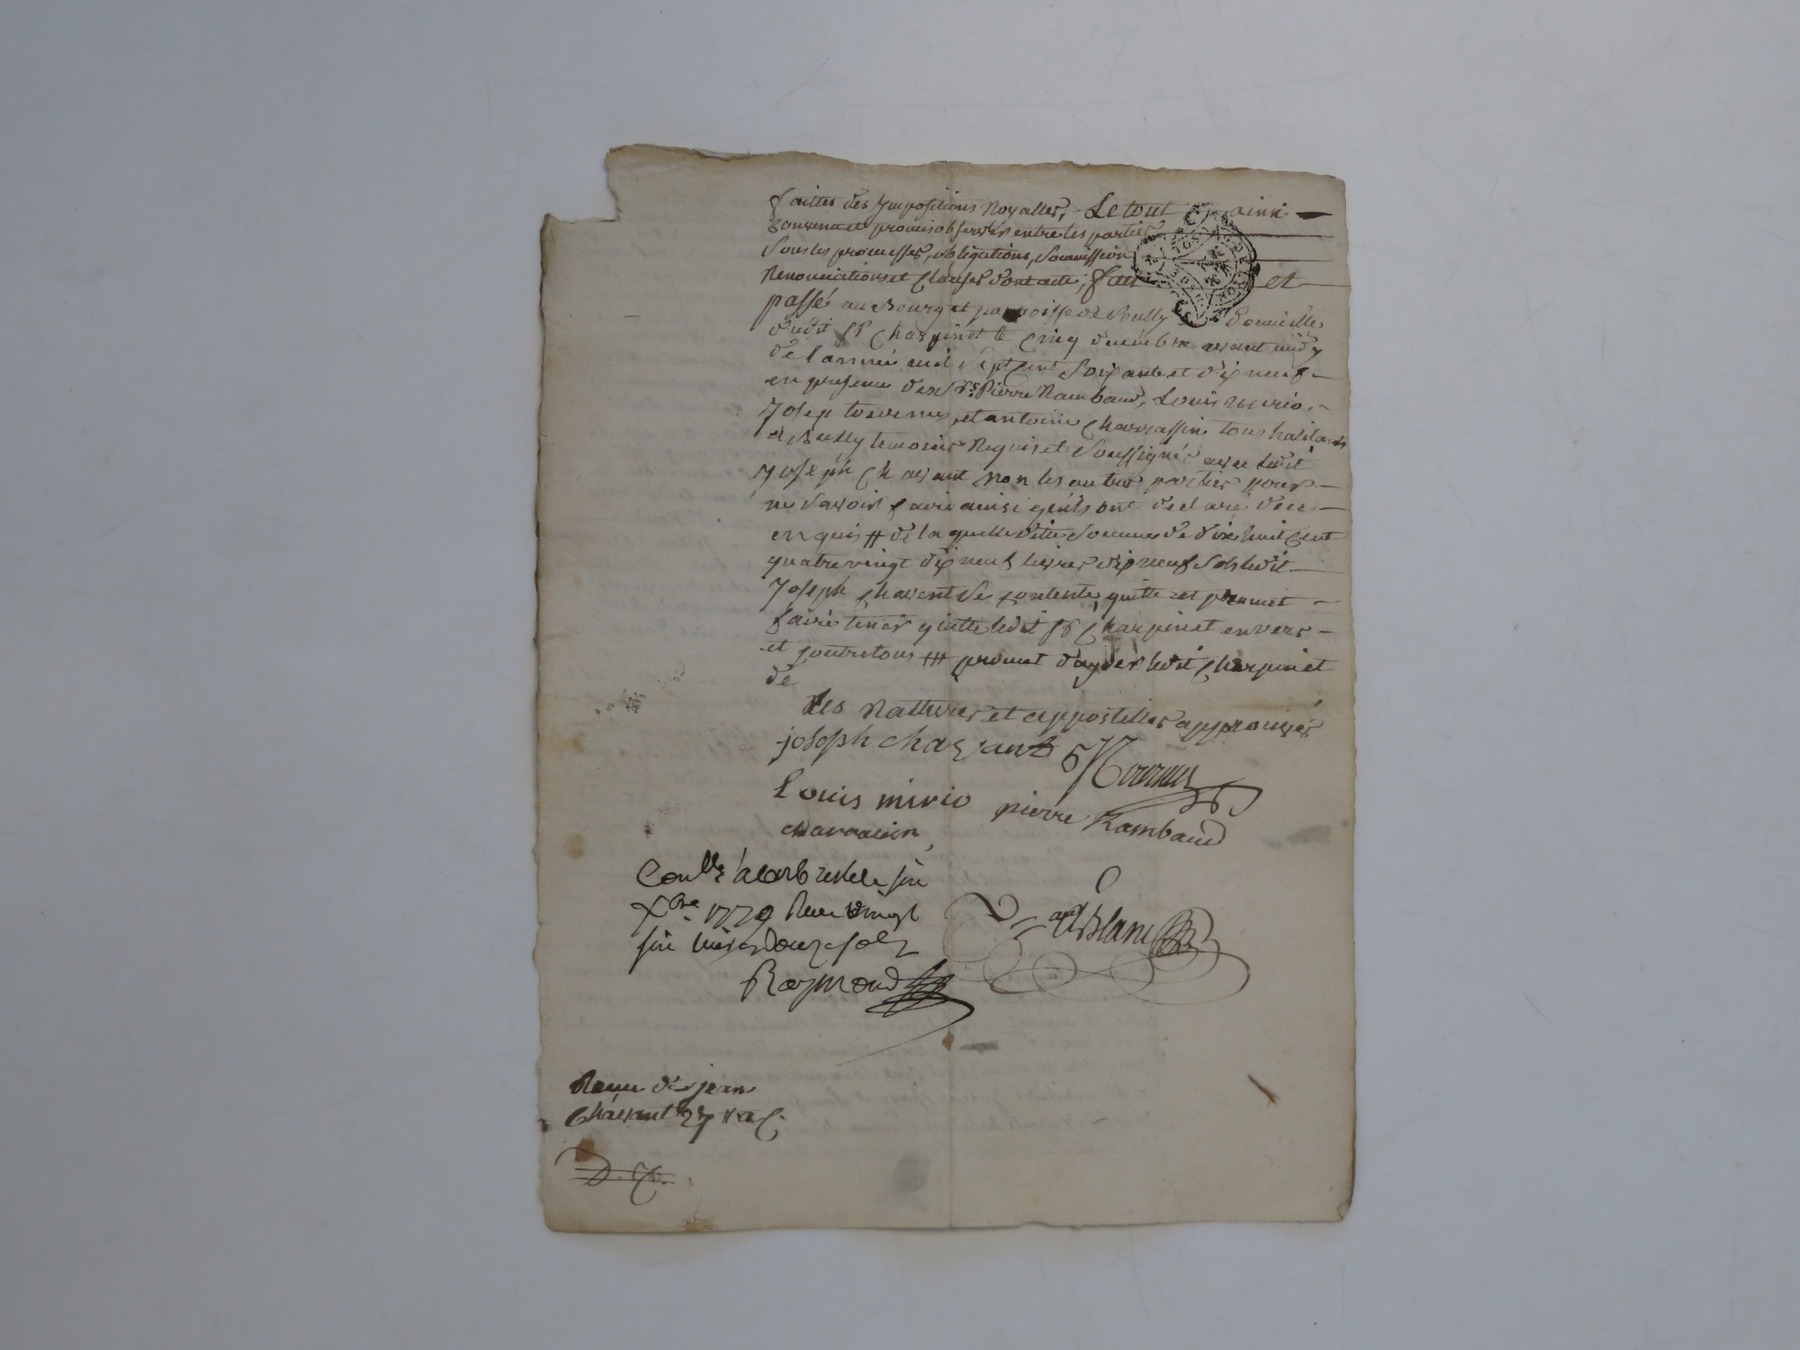 faittes des Impositions Royalles, Le tout ainsi
convenu et promis observer entre les parties
sous les promesses, obligations, soumissions
Renonciations et Clauses dont acte; fait et
passé au Bourg et parroisse de Bully domicille
dudit Sr Charpinet le Cinq decembre avant midy
de lannée mil sept cent soixante et dix neuf
en presence des Srs Pierre Rambaud, Louis mirio,
Josep et antoine Charrassin tous habitants
de Bully temoins Requis et soussignés avec ledit
Joseph Chavant non les autres parties pour
ne savoir faire ainsi qu'ils ont declaré de ce
enquis # de laquelle ditte somme de dix huit Cent
quatre vingt dix neuf livres dix neuf sols ledit
Joseph Chavant se contente, quitte et promet
faire tenir quitte ledit Sr Charpinet envers
et contre tous ## promet dayder ledit Charpinet
de
les Ratures et appostilles approuvés
joseph chavant
Louis mirio pierre Rambaud
charracin
Conllé a larbresle six
Xbre 1779 Reçu vingt
six livres douze sols
Raymond
Reçu de jean
Chavant 27